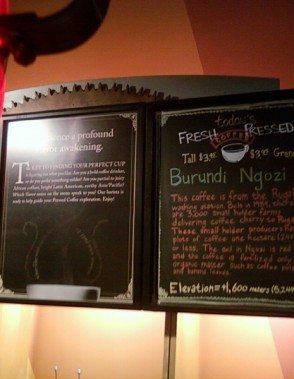 ence a profound
awakening.
THE KEY TO FINDING YOUR PERFECT CUP
is figuring out what you like. Are you a bold coffee drinker,
or do you prefer something milder? Are you partial to juicy
African coffees, bright Latin American, earthy Asia/Pacific?
Which flavor notes on the menu speak to you? Our barista is
ready to help guide your Pressed Coffee exploration. Enjoy!
today's
FRESH COFFEE PRESSED
Tall $3.
Burundi Ngozi
This coffee is from the
washing station. Built in
are 3,000 small holder farms
delivering coffee cherry to
These small holder producers
plots of coffee one hectare
or less. The soil in Ngozi is red
and the coffee is fertilized only
organic matter such as coffee pulp
and banana leaves.
Elevation= 1,600 meters